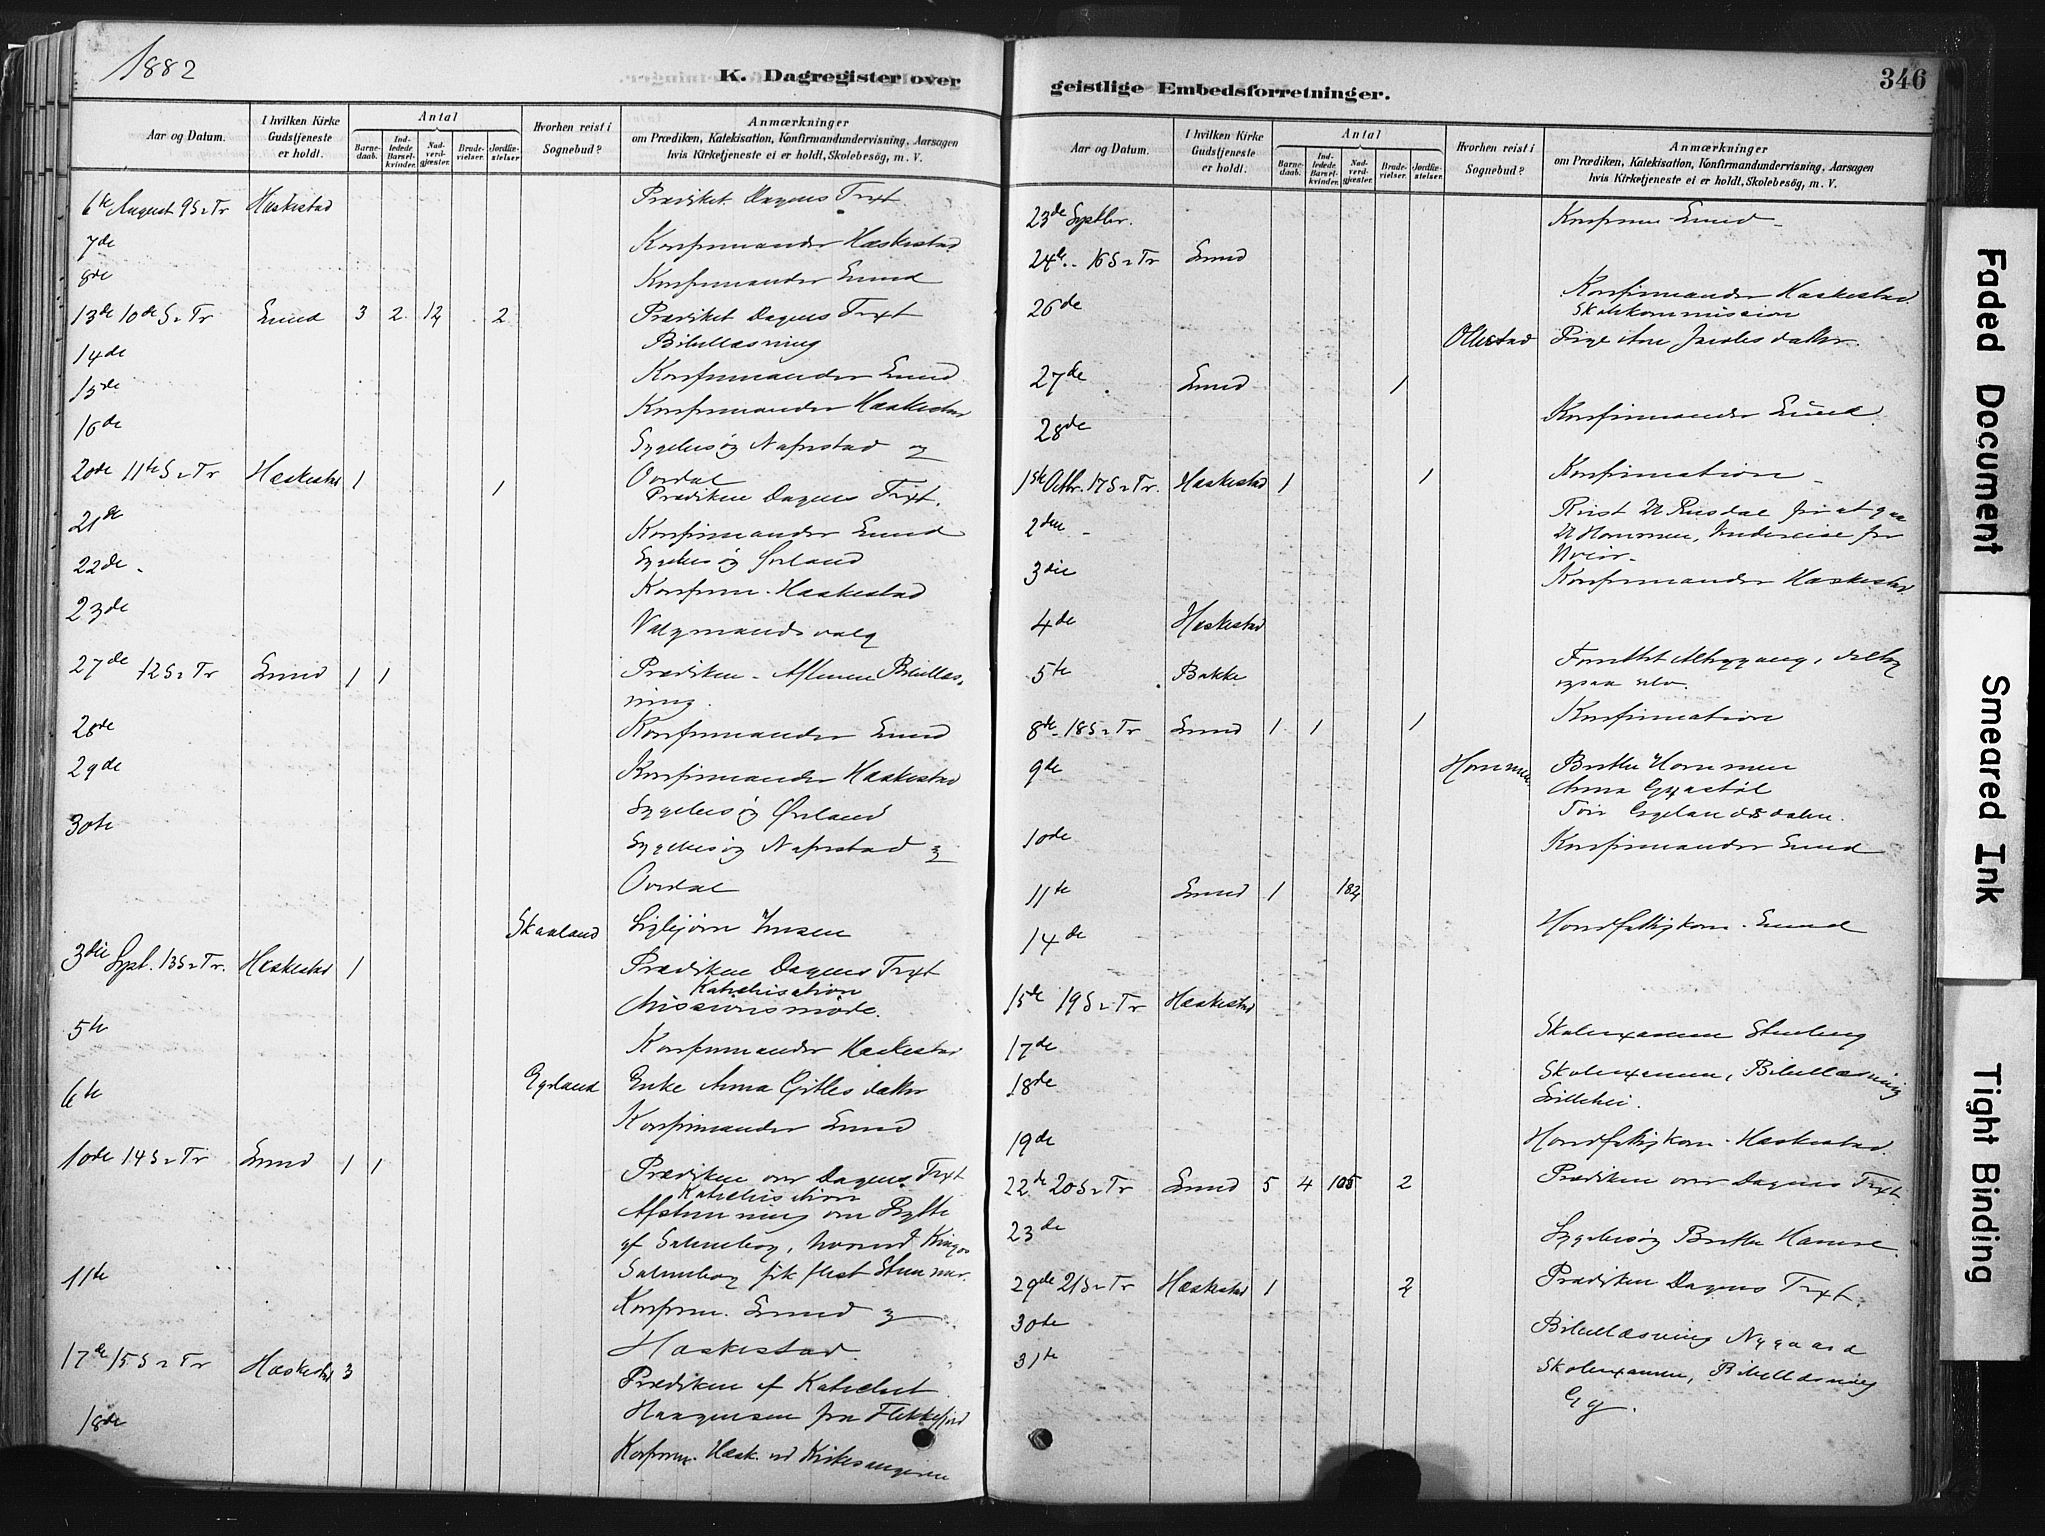 1882
K. Dagregister over
Aar og Datum.
I hvilken Kirke Gudstjeneste er holdt.
Antal
Barnedaab.
Indledede Barselkvinder.
Nadverdgjæster.
Brudevielser.
Jordfæstelser
Hvorhen reist i Sognebud?
Anmærkninger
om Prædiken, Katekisation, Konfirmandundervisning, Aarsagen hvis Kirketjeneste ei er holdt, Skolebesög, m. V.
6te August 9 S. e Tr Heskestad Prædiket Dagens Text
7de Konfirmander Heskestad
8de Konfirmander Lund
13de 10de S. e Tr Lund 3 2 12 2 Prædiket Dagens Text
14de Bibellæsning
15de Konfirmander Lund
16de Konfirmander Heskestad
Sygebesøg Nafrstad og
Ovrdal
20de 11te S. e Tr Heskestad 1 1 Prædiken Dagens Text.
21de Konfirmander Lund
22de Sygebesøg Ørland
Konfirm. Heskestad
23de Valgmandsvalg
27de 12 S. e Tr Lund 1 1 Prædiken - Aftenen Bibellæs-
ning.
28de Konfirmander Lund
29de Konfirmander Heskestad
Sygebesøg Ørland
30te Sygebesøg Nafrstad og
Ovrdal
Skaaland
3die Sept. 13 S. e Tr. Heskestad 1 Prædiken Dagens Text
Katekisation
Missionsmøde.
5te Konfirmander Heskestad
6te Egeland Enke Anna Gitlesdatter
Konfirmander Lund
10de 14 S. e Tr Lund 1 1 Prædiken over Dagens Text
Katekisation
Afstemning om Bytte
af Salmebog, hvorved
Salmebog fik flest Stemmer.
11te Konfirm. Lund og
Heskestad.
17de 15 S. e Tr Heskestad 3 Prædiken af Katechet
Haagensen fra Flekkefjord
18de Konfirm. Hesk. ved Kirkesangeren
geistlige Embedsforretninger.
346
Aar og Datum.
I hvilken Kirke Gudstjeneste er holdt.
Antal
Barnedaab.
Indledede Barselkvinder.
Nadverdgjæster.
Brudevielser.
Jordfæstelser.
Hvorhen reist i Sognebud?
Anmærkninger
om Prædiken, Katekisation, Konfirmandundervisning, Aarsagen hvis Kirketjeneste ei er holdt, Skolebesög, m. V.
23de Septbr. Konfirm Lund
24de 16 S. e Tr Lund
26de Konfirmander Heskestad
Skolekommission
Ollestad Pige Ane Jacobsdatter.
27de Lund 1
28de Konfirmander Lund
1ste Octbr. 17 S. e Tr. Heskestad 1 1 Konfirmation
2den Reist til Rusdal for at gaa
til Hommen,
3die Konfirmander Heskestad
4de Heskestad
5te Bakke Forrettet Altergang, deltog
ogsaa selv.
8de 18 S. e Tr Lund 1 1 1 Konfirmation
9de Hommen Berthe Hommen
Anna Gyastøl
10de Konfirmander Lund
11te Lund 1 182
14de Hovedfattigkom. Lund
15de 19 S. e Tr Heskestad
17de Skoleexamen Stenberg
18de Skoleexamen, Bibellæsning
19de Hovedfattigkom. Heskestad.
22de 20 S. e Tr Lund 5 4 105 2 Prædiken over Dagens Text
23de Sygebesøg Berthe
29de 21 S. e Tr Heskestad 1 2 Prædiken Dagens Text.
30te Bibellæsning Nygaard
31te Skoleexamen, Bibellæsning
Eg.
Faded Document
Smeared Ink
Tight Binding